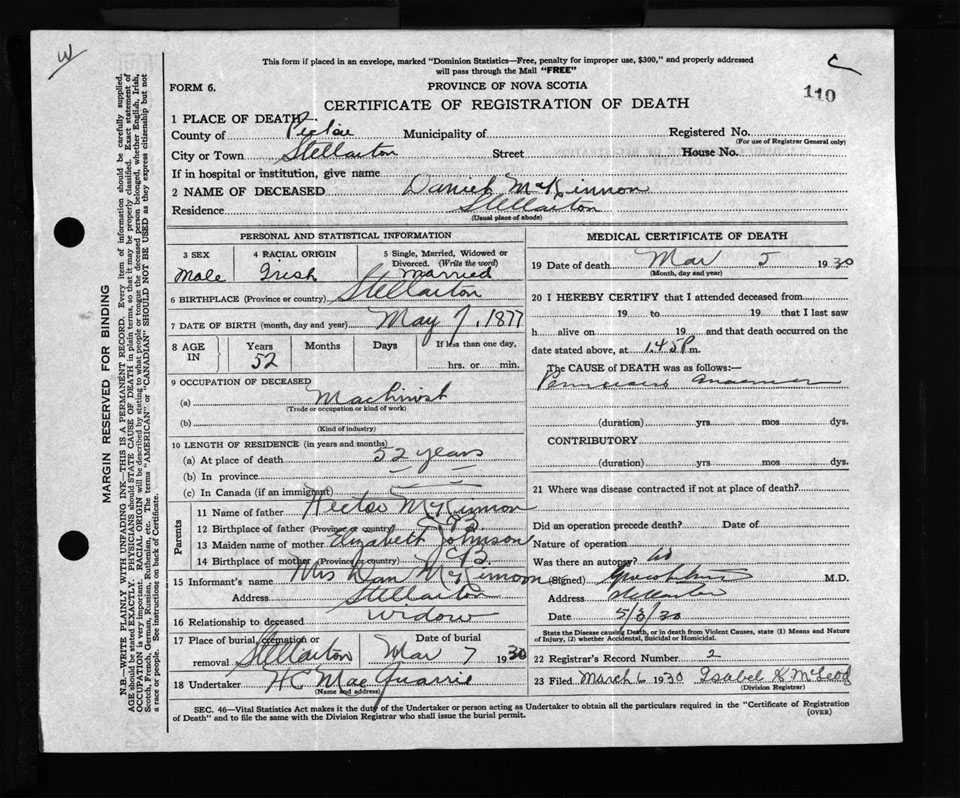 W
This form if placed in an envelope, marked "Dominion Statistics—Free, penalty for improper use, $300," and properly addressed
will pass through the Mail "FREE"
FORM 6.
PROVINCE OF NOVA SCOTIA
110
CERTIFICATE OF REGISTRATION OF DEATH
1 PLACE OF DEATH
County of Pictou Municipality of Registered No.
(For use of Registrar General only)
City or Town Stellarton Street House No.
If in hospital or institution, give name
2 NAME OF DECEASED Daniel McKinnon
Residence Stellarton
(Usual place of abode)
PERSONAL AND STATISTICAL INFORMATION
3 SEX 4 RACIAL ORIGIN 5 Single, Married, Widowed or Divorced. (Write the word)
Male Irish Married
6 BIRTHPLACE (Province or country) Stellarton
7 DATE OF BIRTH (month, day and year) May 7, 1877
8 AGE IN Years Months Days If less than one day,
52 hrs. or min.
9 OCCUPATION OF DECEASED
(a) Machinist
(Trade or occupation or kind of work)
(b)
(Kind of industry)
10 LENGTH OF RESIDENCE (in years and months)
(a) At place of death 52 years
(b) In province
(c) In Canada (if an immigrant)
Parents
11 Name of father Hector McKinnon
12 Birthplace of father (Province or country) C.B.
13 Maiden name of mother Elizabeth Johnson
14 Birthplace of mother (Province or country) C.B.
15 Informant's name Mrs Dan McKinnon
Address Stellarton
16 Relationship to deceased Widow
17 Place of burial, cremation or removal Stellarton Date of burial Mar 7 1930
18 Undertaker H C MacQuarrie
(Name and address)
MEDICAL CERTIFICATE OF DEATH
19 Date of death Mar 5 1930
(Month, day and year)
20 I HEREBY CERTIFY that I attended deceased from
19 to 19 that I last saw
h alive on 19 and that death occurred on
date stated above, at 1.45 P m.
The CAUSE of DEATH was as follows:—
Pernicious Anaemia
(duration) yrs. mos dys.
CONTRIBUTORY
(duration) yrs. mos. dys.
21 Where was disease contracted if not at place of death?
Did an operation precede death? Date of
Nature of operation
Was there an autopsy? no
(Signed) M.D.
Address Stellarton
Date 5/3/30
State the Disease causing Death, or in death from Violent Causes, state (1) Means and Nature
of Injury, (2) whether Accidental, Suicidal or Homicidal.
22 Registrar's Record Number 2
23 Filed March 6 1930 Isabel McLeod
(Division Registrar)
SEC. 46—Vital Statistics Act makes it the duty of the Undertaker or person acting as Undertaker to obtain all the particulars required in the "Certificate of Registration
of Death" and to file the same with the Division Registrar who shall issue the burial permit.
(OVER)
MARGIN RESERVED FOR BINDING
N.B.—WRITE PLAINLY WITH UNFADING INK—THIS IS A PERMANENT RECORD. Every item of information should be carefully supplied.
AGE should be stated EXACTLY. PHYSICIANS should STATE CAUSE OF DEATH in plain terms, so that it may be properly classified. Exact statement of
OCCUPATION is very important. RACIAL ORIGIN will be described by stating to what people or tongue the deceased person belonged, whether English, Irish,
Scotch, French, German, Russian, Ruthenian, etc. The terms "AMERICAN" or "CANADIAN" SHOULD NOT BE USED as they express citizenship but not
a race or people. See instructions on back of Certificate.